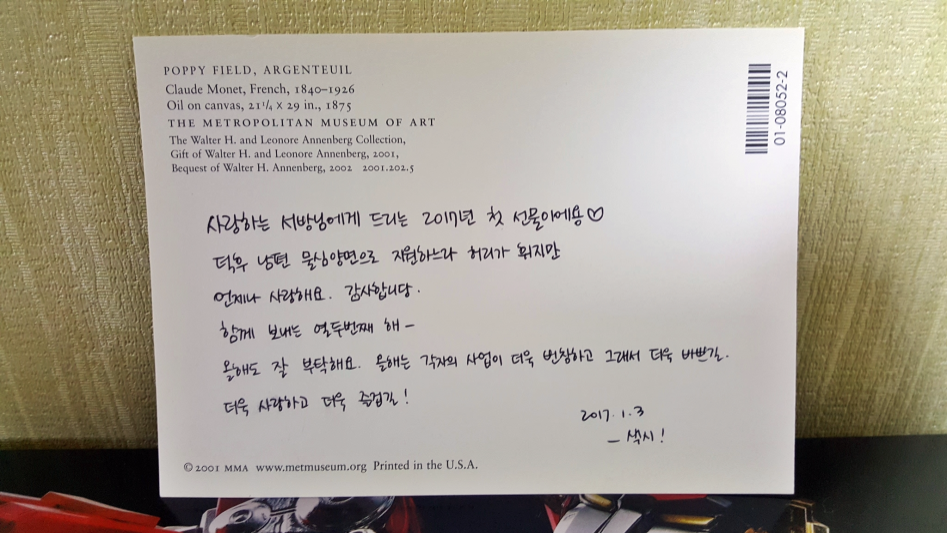 POPPY FIELD, ARGENTEUIL
Claude Monet, French, 1840–1926
Oil on canvas, 21¼ × 29 in., 1875
THE METROPOLITAN MUSEUM OF ART
The Walter H. and Leonore Annenberg Collection,
Gift of Walter H. and Leonore Annenberg, 2001,
Bequest of Walter H. Annenberg, 2002 2001.202.5
01-08052-2
사랑하는 서방님에게 드리는 2017년 첫 선물이에용♡
덕후 남편 물심양면으로 지원하느라 허리가 휘지만
언제나 사랑해요. 감사합니당.
함께 보내는 열두번째 해 –
올해도 잘 부탁해요. 올해는 각자의 사업이 더욱 번창하고 그래서 더욱 바쁘길.
더욱 사랑하고 더욱 즐겁길!
2017.1.3
– 색시!
© 2001 MMA www.metmuseum.org Printed in the U.S.A.